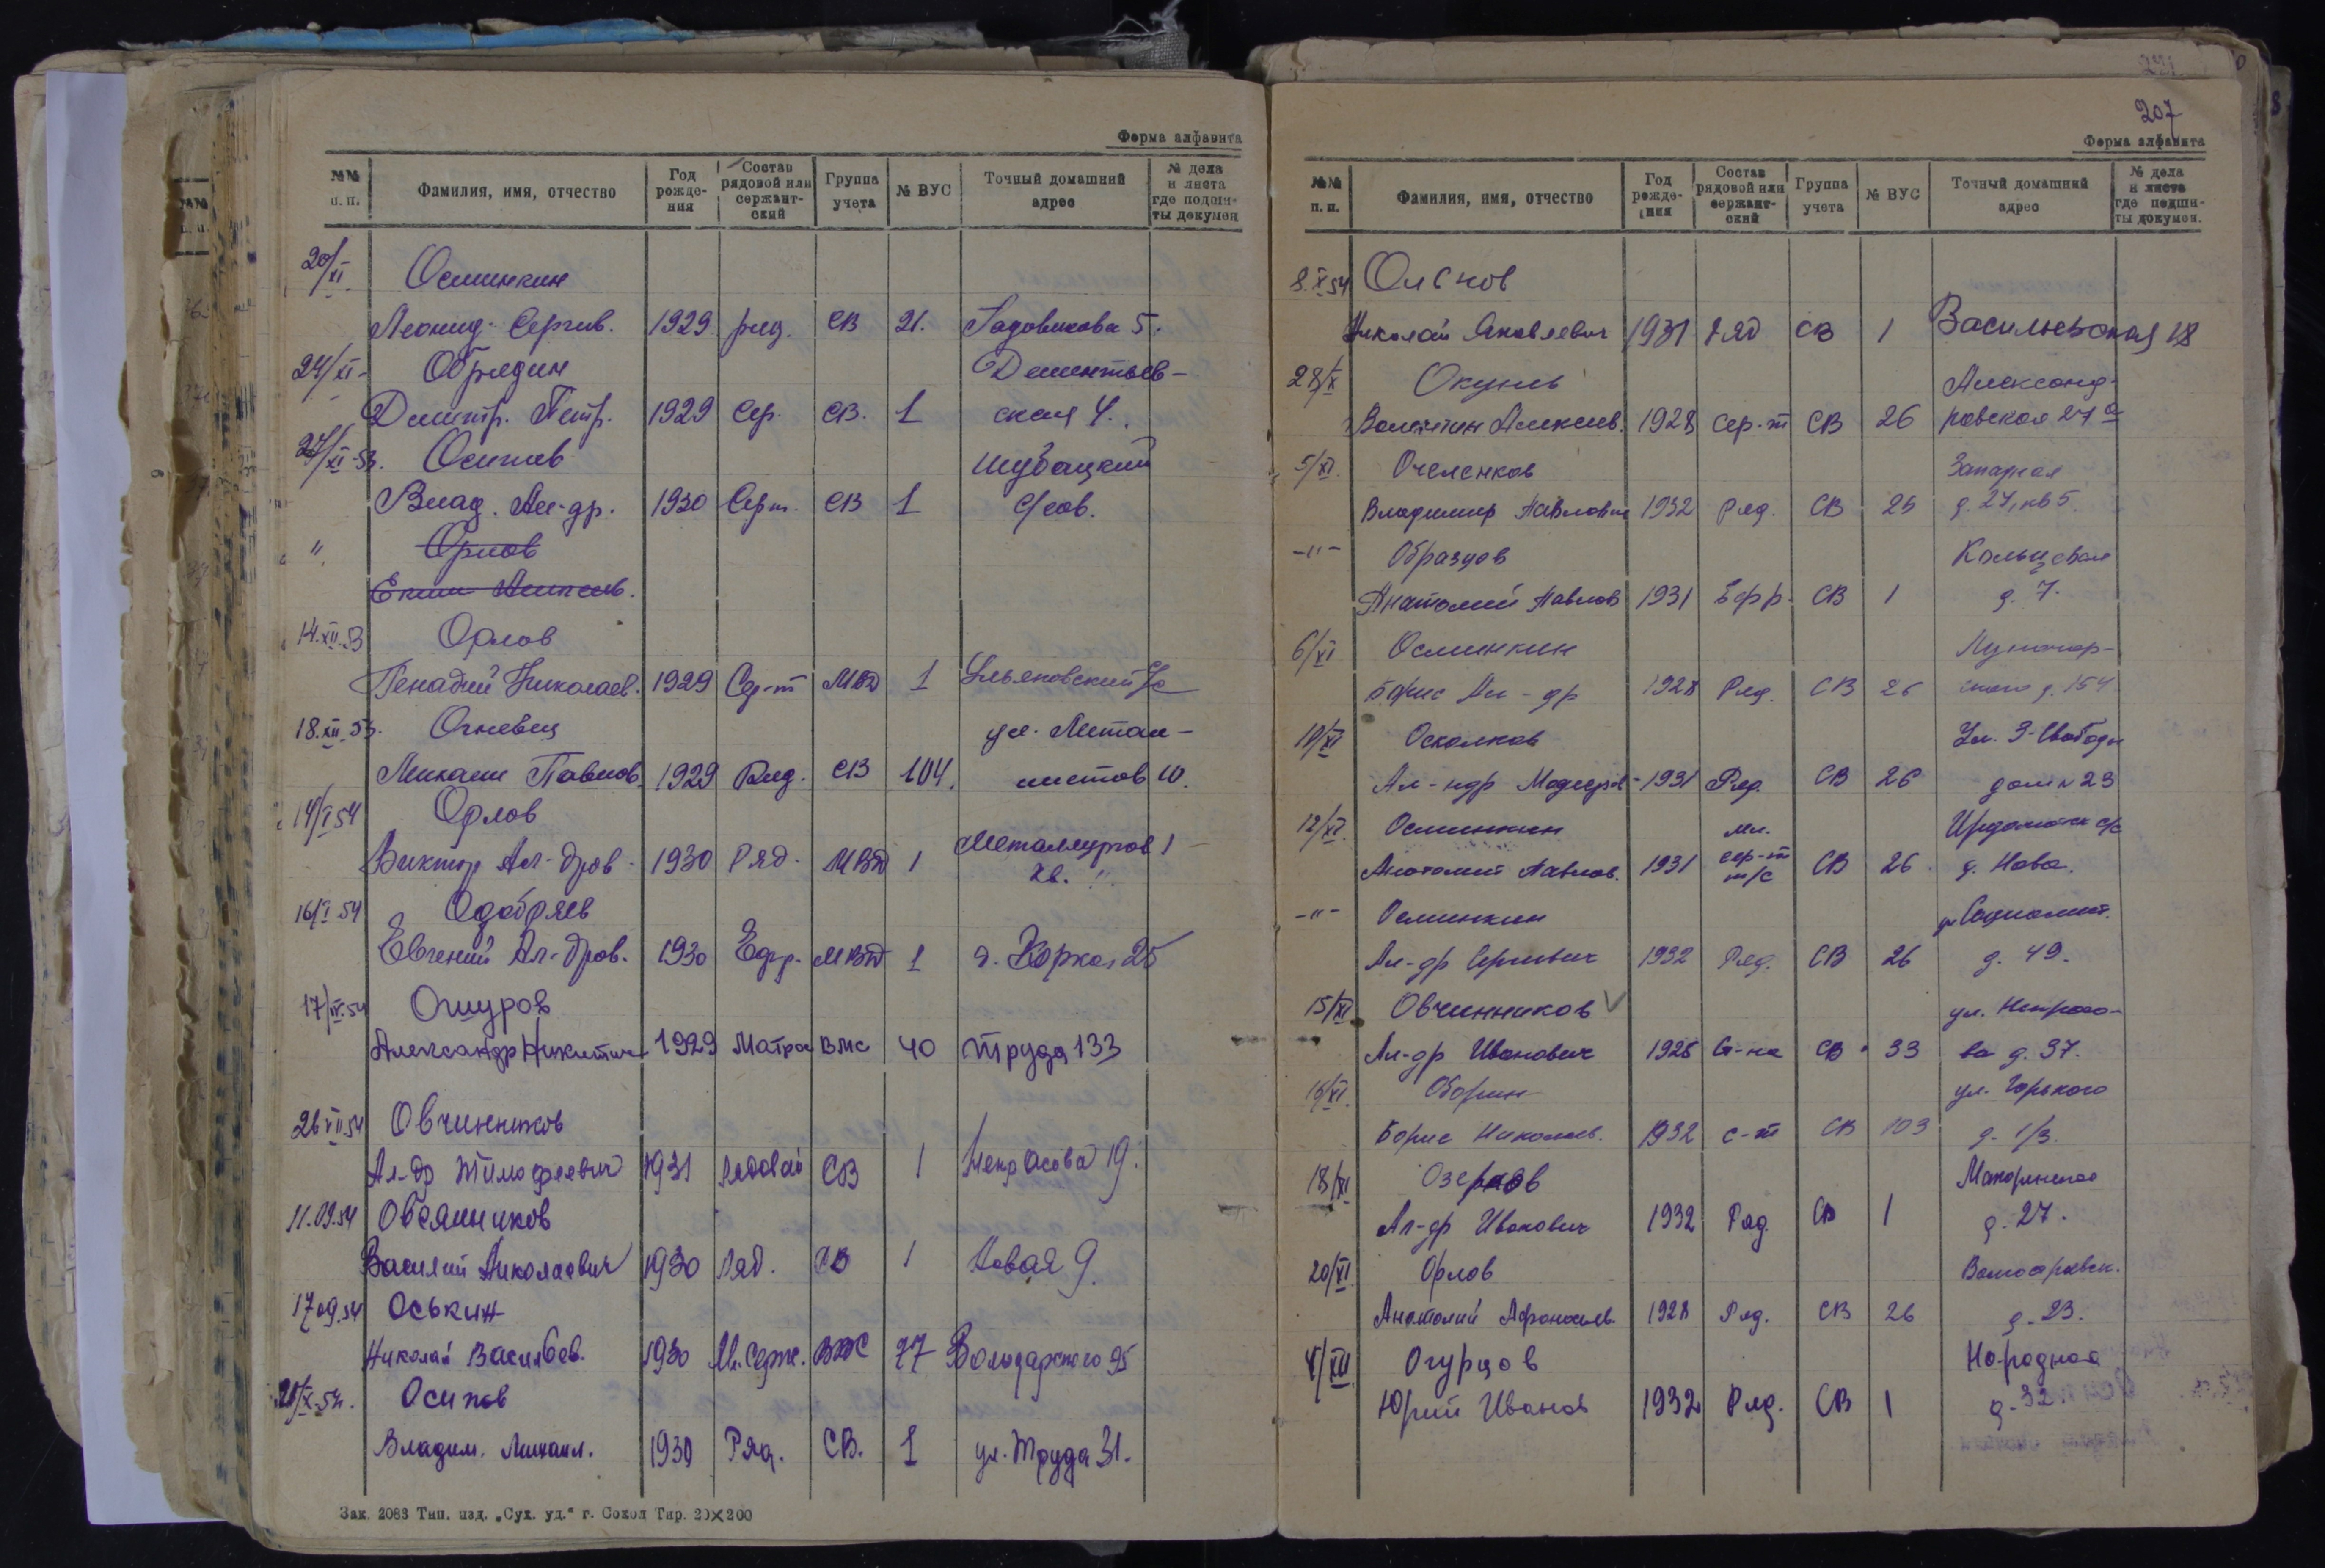 Форма алфавита
№№ п. п. Фамилия, имя, отчество Год рожде- ния Состав рядовой или сержант- ский Группа учета № ВУС Точный домашний адрес № дела и листа где подши- ты докумен
20/XI Осминкин
Леонид Сергив. 1929 ряд. СВ 21. Гадовикова 5.
24/XI- Обрядин Дементьев-
Дмитр. Петр. 1929 Сер. СВ. 1 ская 4.
27/XI-53. Осипов Шубацкий
Влад. Ал-др. 1930 Серж. СВ 1 с/сов.
" Орлов
Алексеев.
14.XII.53 Орлов
Генадий Николаев. 1929 Сер-т МВД 1 Ульяновский с/с
18.XII.53. Огневец ул. Метал-
Михаил Павлов. 1929 Ряд. СВ 104. листов 10.
14/I 54 Орлов
Виктор Ал-дров. 1930 Ряд. МВД 1 Металлургов 1
кв. 11.
16/I 54 Одобряев
Евгений Ал-дров. 1930 Ефр. МВД 1 д. 25
17/IV.54 Ошуров
Александр Никитич 1929 Матрос ВМС 40 Труда 133
26 VII 54 Овчинников
Ал-др Тимофеевич 1931 рядовой СВ 1 Некрасова 19.
11.09.54 Овсянников
Василий Николаевич 1930 ряд. СВ 1 Новая 9.
17 09.54 Оськин
Николай Васильев. 1930 Мл. серж. 77 Володарского 95
21/X-54. Осипов
Владим. Михаил. 1930 Ряд. СВ. 1 ул. Труда 31.
Зак. 2083 Тип. изд. „Сух. уд." г. Сокол Тир. 20×200
207
Форма алфавита
№№ п. п. Фамилия, имя, отчество Год рожде- ния Состав рядовой или сержант- ский Группа учета № ВУС Точный домашний адрес № дела и листа где подши- ты докумен.
8.X 54
Николай Яковлевич 1931 ряд СВ 1 Васильевская 18
28/X Окунь Александ-
Валентин Алексеев. 1928 сер-т СВ 26 ровская 27а
5/XI. Очеленков Западная
Владимир Павлович 1932 Ряд. СВ 26 д. 27, кв 5.
-"- Образцов Кольцевая
Анатолий Павлов 1931 Ефр. СВ 1 д. 7.
6/XI Осминкин Луначар-
Борис Ал-др 1928 Ряд. СВ 26 ского д. 154
10/XI Осколков Ул. 3-Свободы
Ал-ндр 1931 Ряд. СВ 26 дом № 23
12/XI. Осминкин мл. Ирдоматск с/с
Анатолий Павлов. 1931 сер-т т/с СВ 26 д. Нова.
-"- Осминкин ул Социалист.
Ал-др Сергеевич 1932 Ряд. СВ 26 д. 49.
15/XI Овчинников ул. Некрасо-
Ал-др Иванович 1926 Ст-на СВ 33 ва д. 37.
16/XI. Оборин ул. Горького
Борис Николаев. 1932 с-т СВ 103 д. 1/3.
18/XI Озеров Макаринская
Ал-др Иванович 1932 Ряд. СВ 1 д. 27.
20/XI Орлов
Анатолий Афанасьев. 1928 Ряд. СВ 26 д. 23.
4/XII Огурцов Народная
Юрий Иванов 1932 Ряд. СВ 1 д. 32